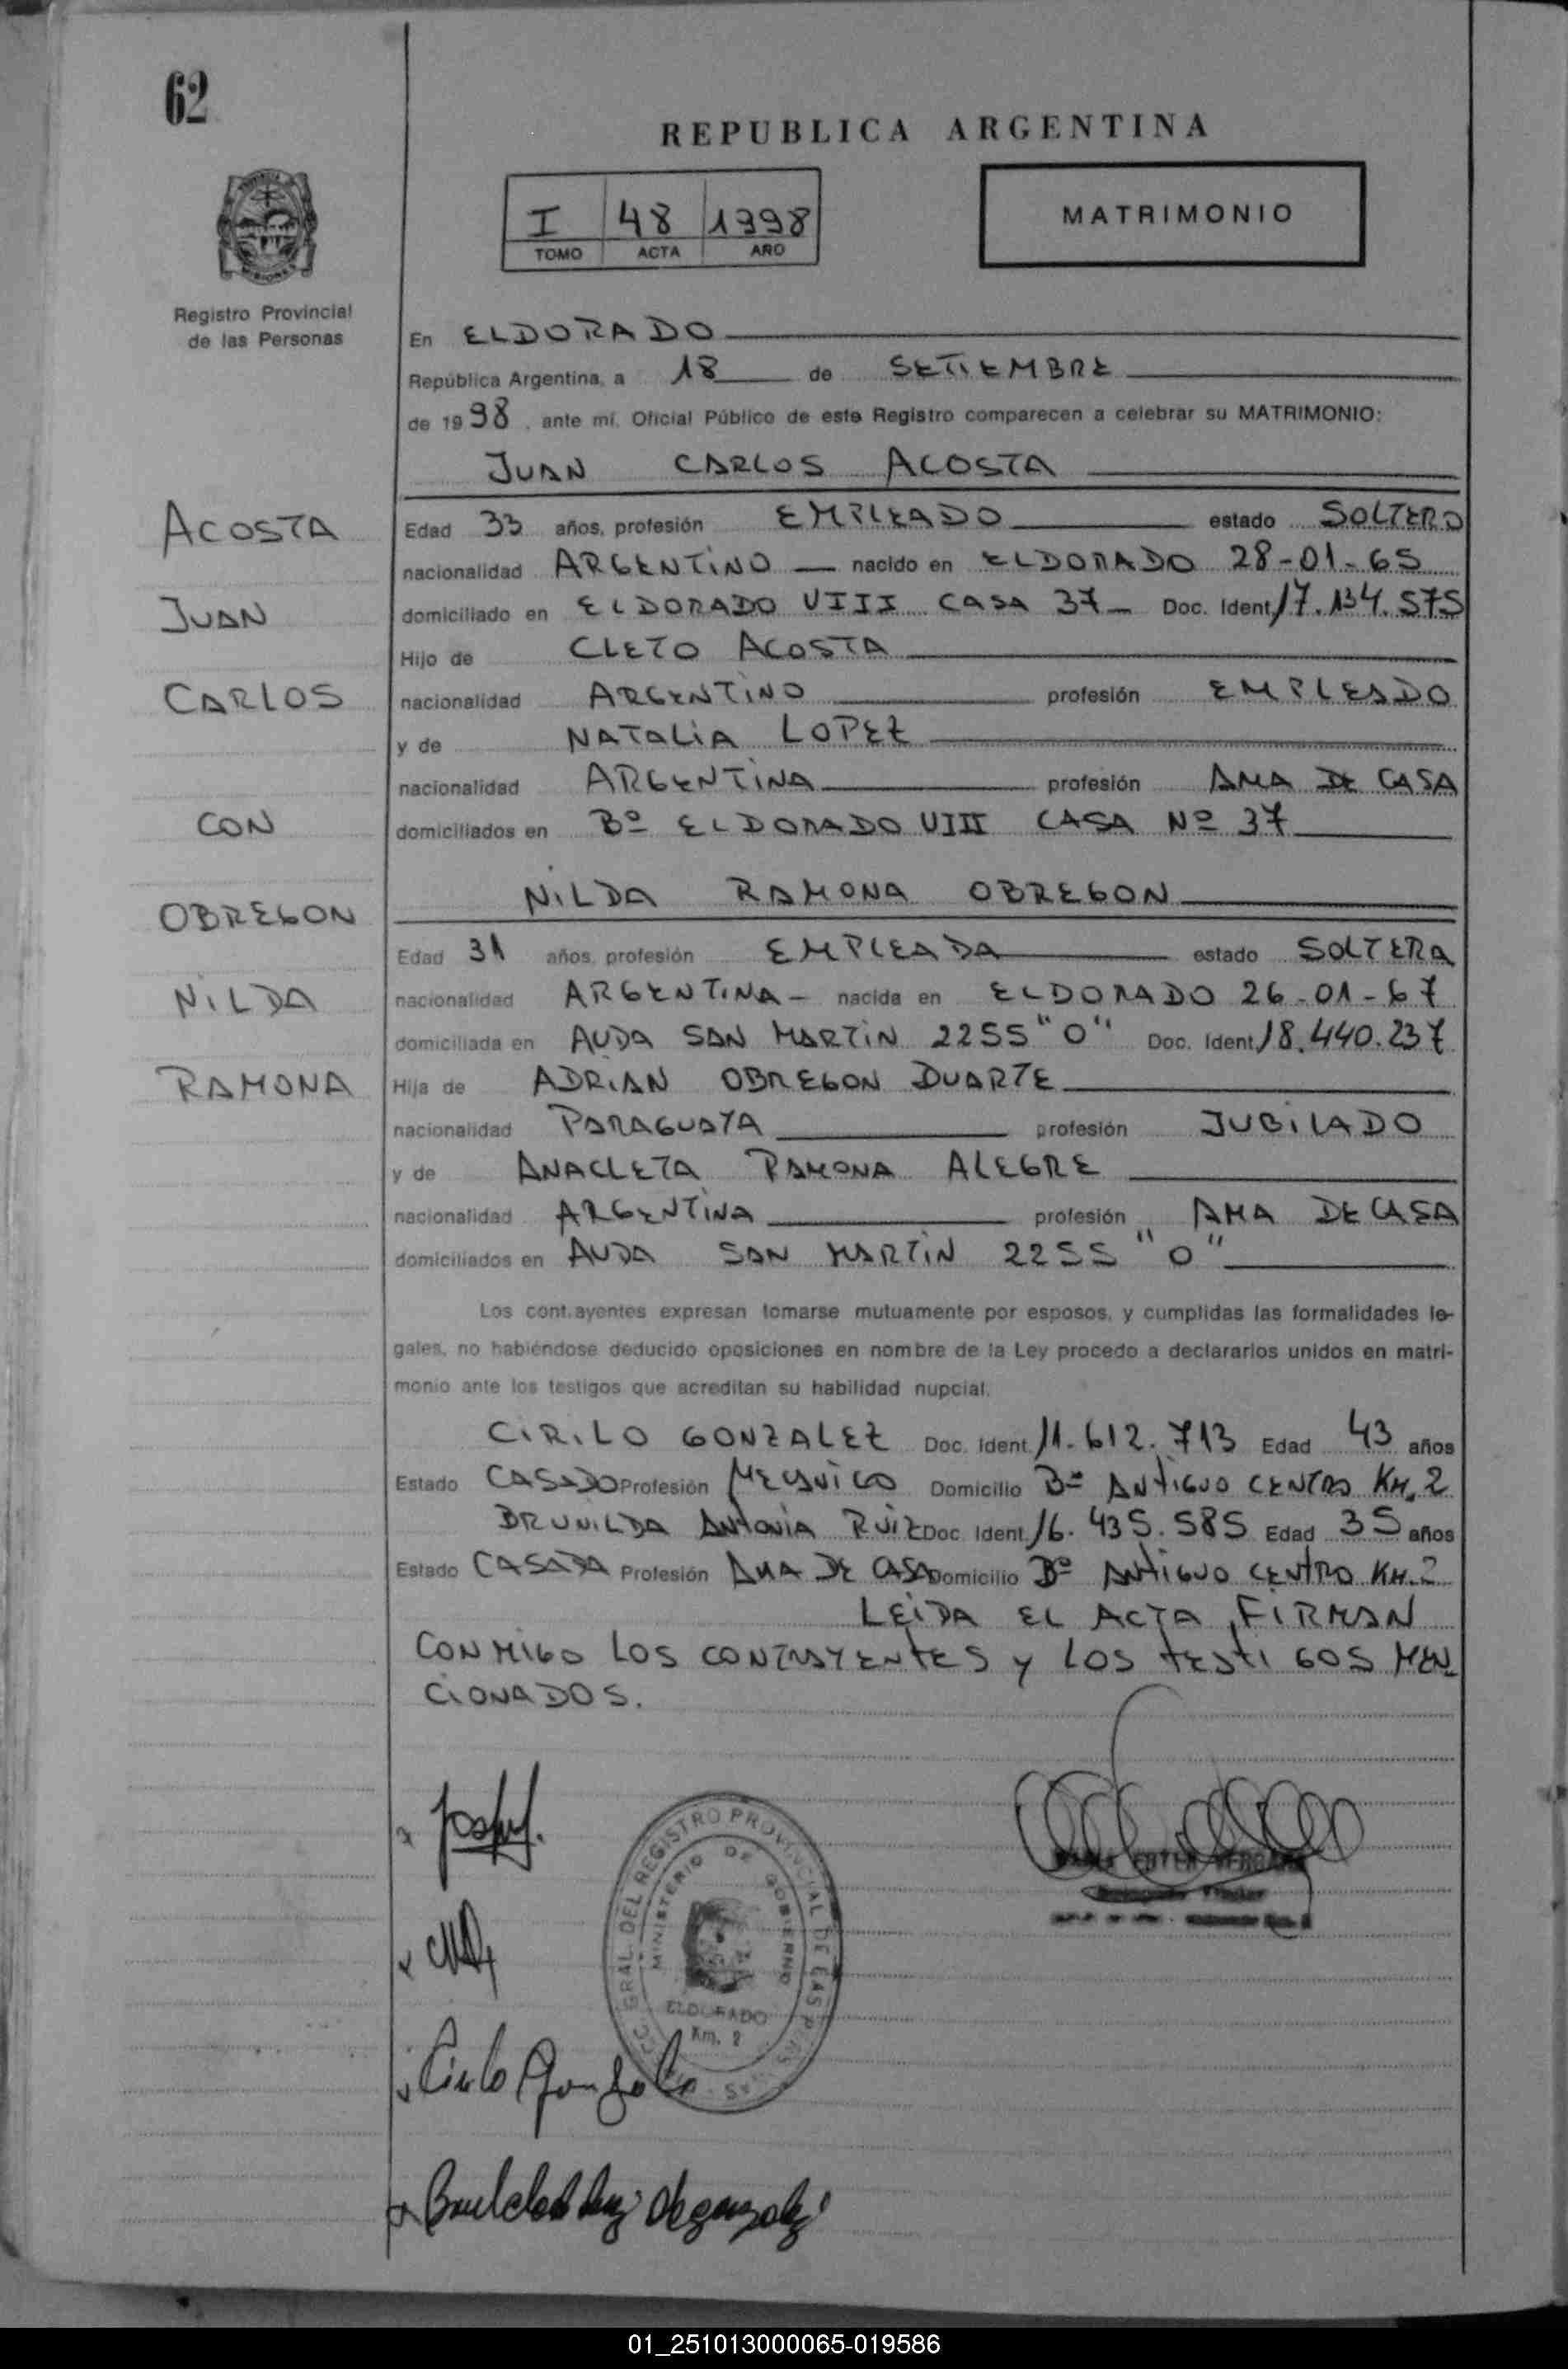 62
REPUBLICA ARGENTINA
I 48 1998
TOMO ACTA AÑO
MATRIMONIO
Registro Provincial
de las Personas
En ELDORADO
República Argentina, a 18 de SETIEMBRE
de 1998, ante mí, Oficial Público de este Registro comparecen a celebrar su MATRIMONIO:
JUAN CARLOS ACOSTA
ACOSTA
JUAN
CARLOS
CON
OBREGON
NILDA
RAMONA
Edad 33 años, profesión EMPLEADO estado SOLTERO
nacionalidad ARGENTINO nacido en ELDORADO 28-01-65
domiciliado en ELDORADO VIII CASA 37 Doc. Ident. 17.134.575
Hijo de CLETO ACOSTA
nacionalidad ARGENTINO profesión EMPLEADO
y de NATALIA LOPEZ
nacionalidad ARGENTINA profesión AMA DE CASA
domiciliados en Bº ELDORADO VIII CASA Nº 37
NILDA RAMONA OBREGON
Edad 31 años, profesión EMPLEADA estado SOLTERA
nacionalidad ARGENTINA - nacida en ELDORADO 26-01-67
domiciliada en AVDA SAN MARTIN 2255 "O" Doc. Ident. 18.440.237
Hija de ADRIAN OBREGON DUARTE
nacionalidad PARAGUAYA profesión JUBILADO
y de ANACLETA RAMONA ALEGRE
nacionalidad ARGENTINA profesión AMA DE CASA
domiciliados en AVDA SAN MARTIN 2255 "O"
Los contrayentes expresan tomarse mutuamente por esposos, y cumplidas las formalidades le-
gales, no habiéndose deducido oposiciones en nombre de la Ley procedo a declararlos unidos en matri-
monio ante los testigos que acreditan su habilidad nupcial.
CIRILO GONZALEZ Doc. Ident. 11.612.713 Edad 43 años
Estado CASADO Profesión MECANICO Domicilio Bº ANTIGUO CENTRO KM. 2
BRUNILDA ANTONIA RUIZ Doc. Ident. 16.435.585 Edad 35 años
Estado CASADA Profesión AMA DE CASA Domicilio Bº ANTIGUO CENTRO KM. 2
LEIDA EL ACTA, FIRMAN
CONMIGO LOS CONTRAYENTES Y LOS TESTIGOS MEN-
CIONADOS.
GRAL. DEL REGISTRO PROVINCIAL DE LAS PERSONAS
MINISTERIO DE GOBIERNO
ELDORADO
Km. 2
Cirilo Gonzalez
01_251013000065-019586